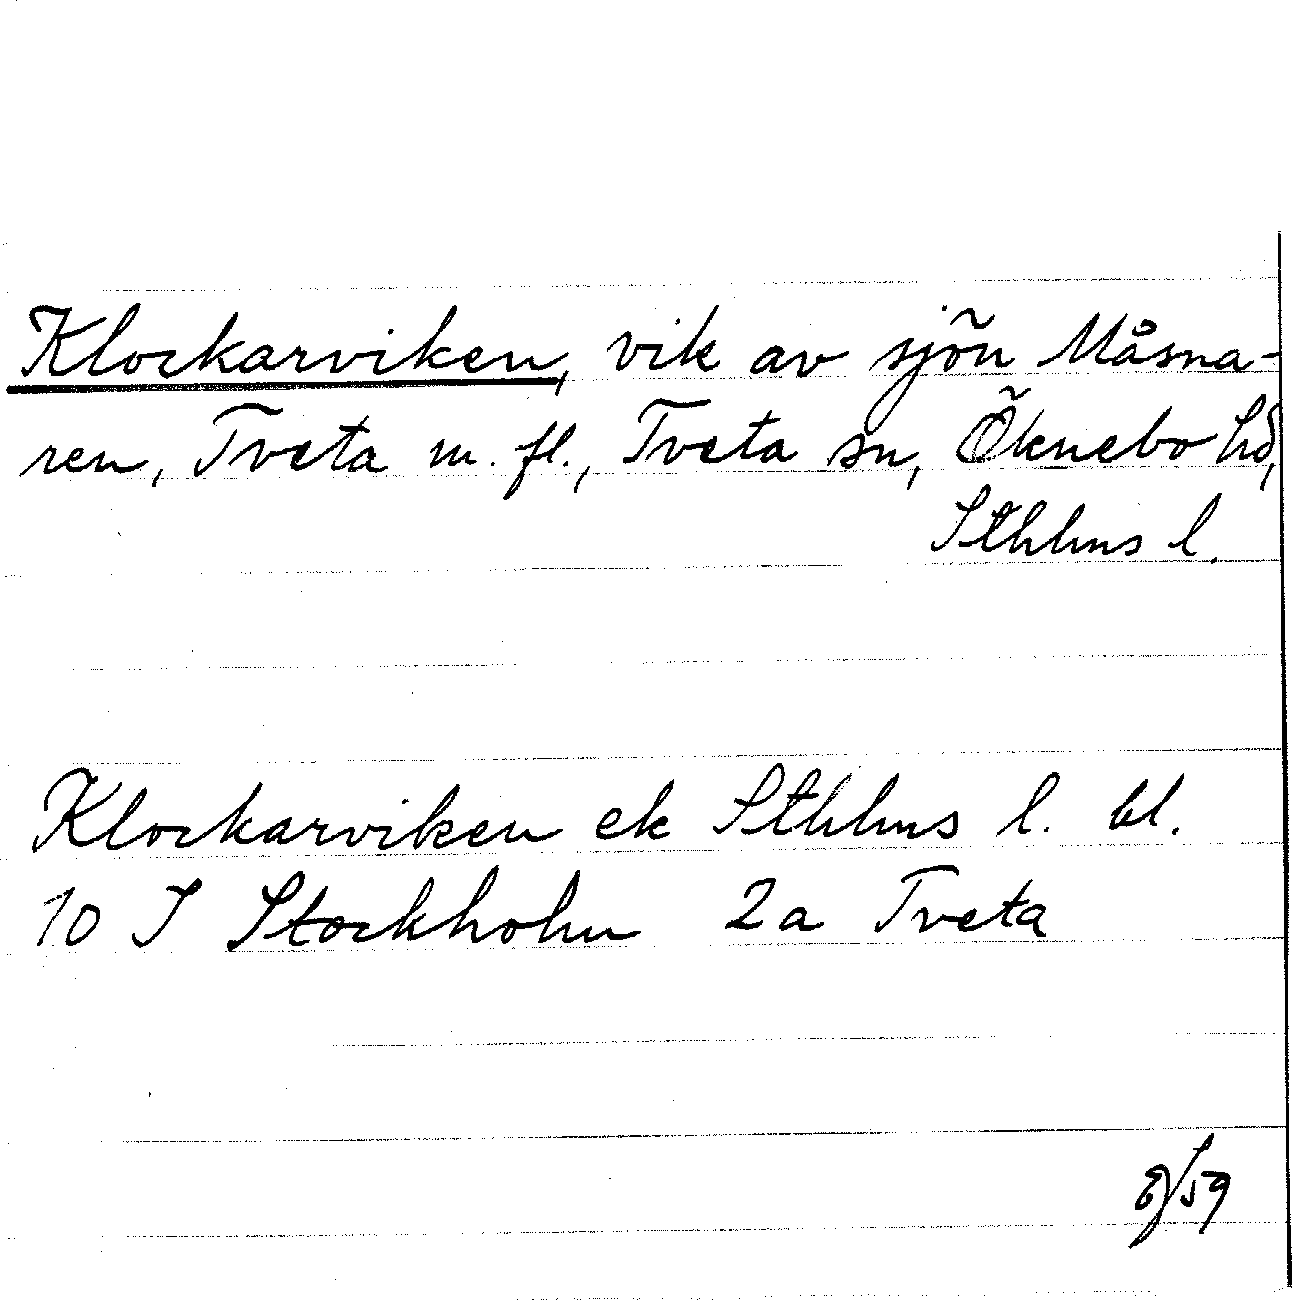 Klockarviken, vik av sjön Måsna-
ren, Tveta m. fl., Tveta sn, Öknebo hd,
Sthlms l.
Klockarviken ek Sthlms l. bl.
10 I Stockholm 2a Tveta
/59